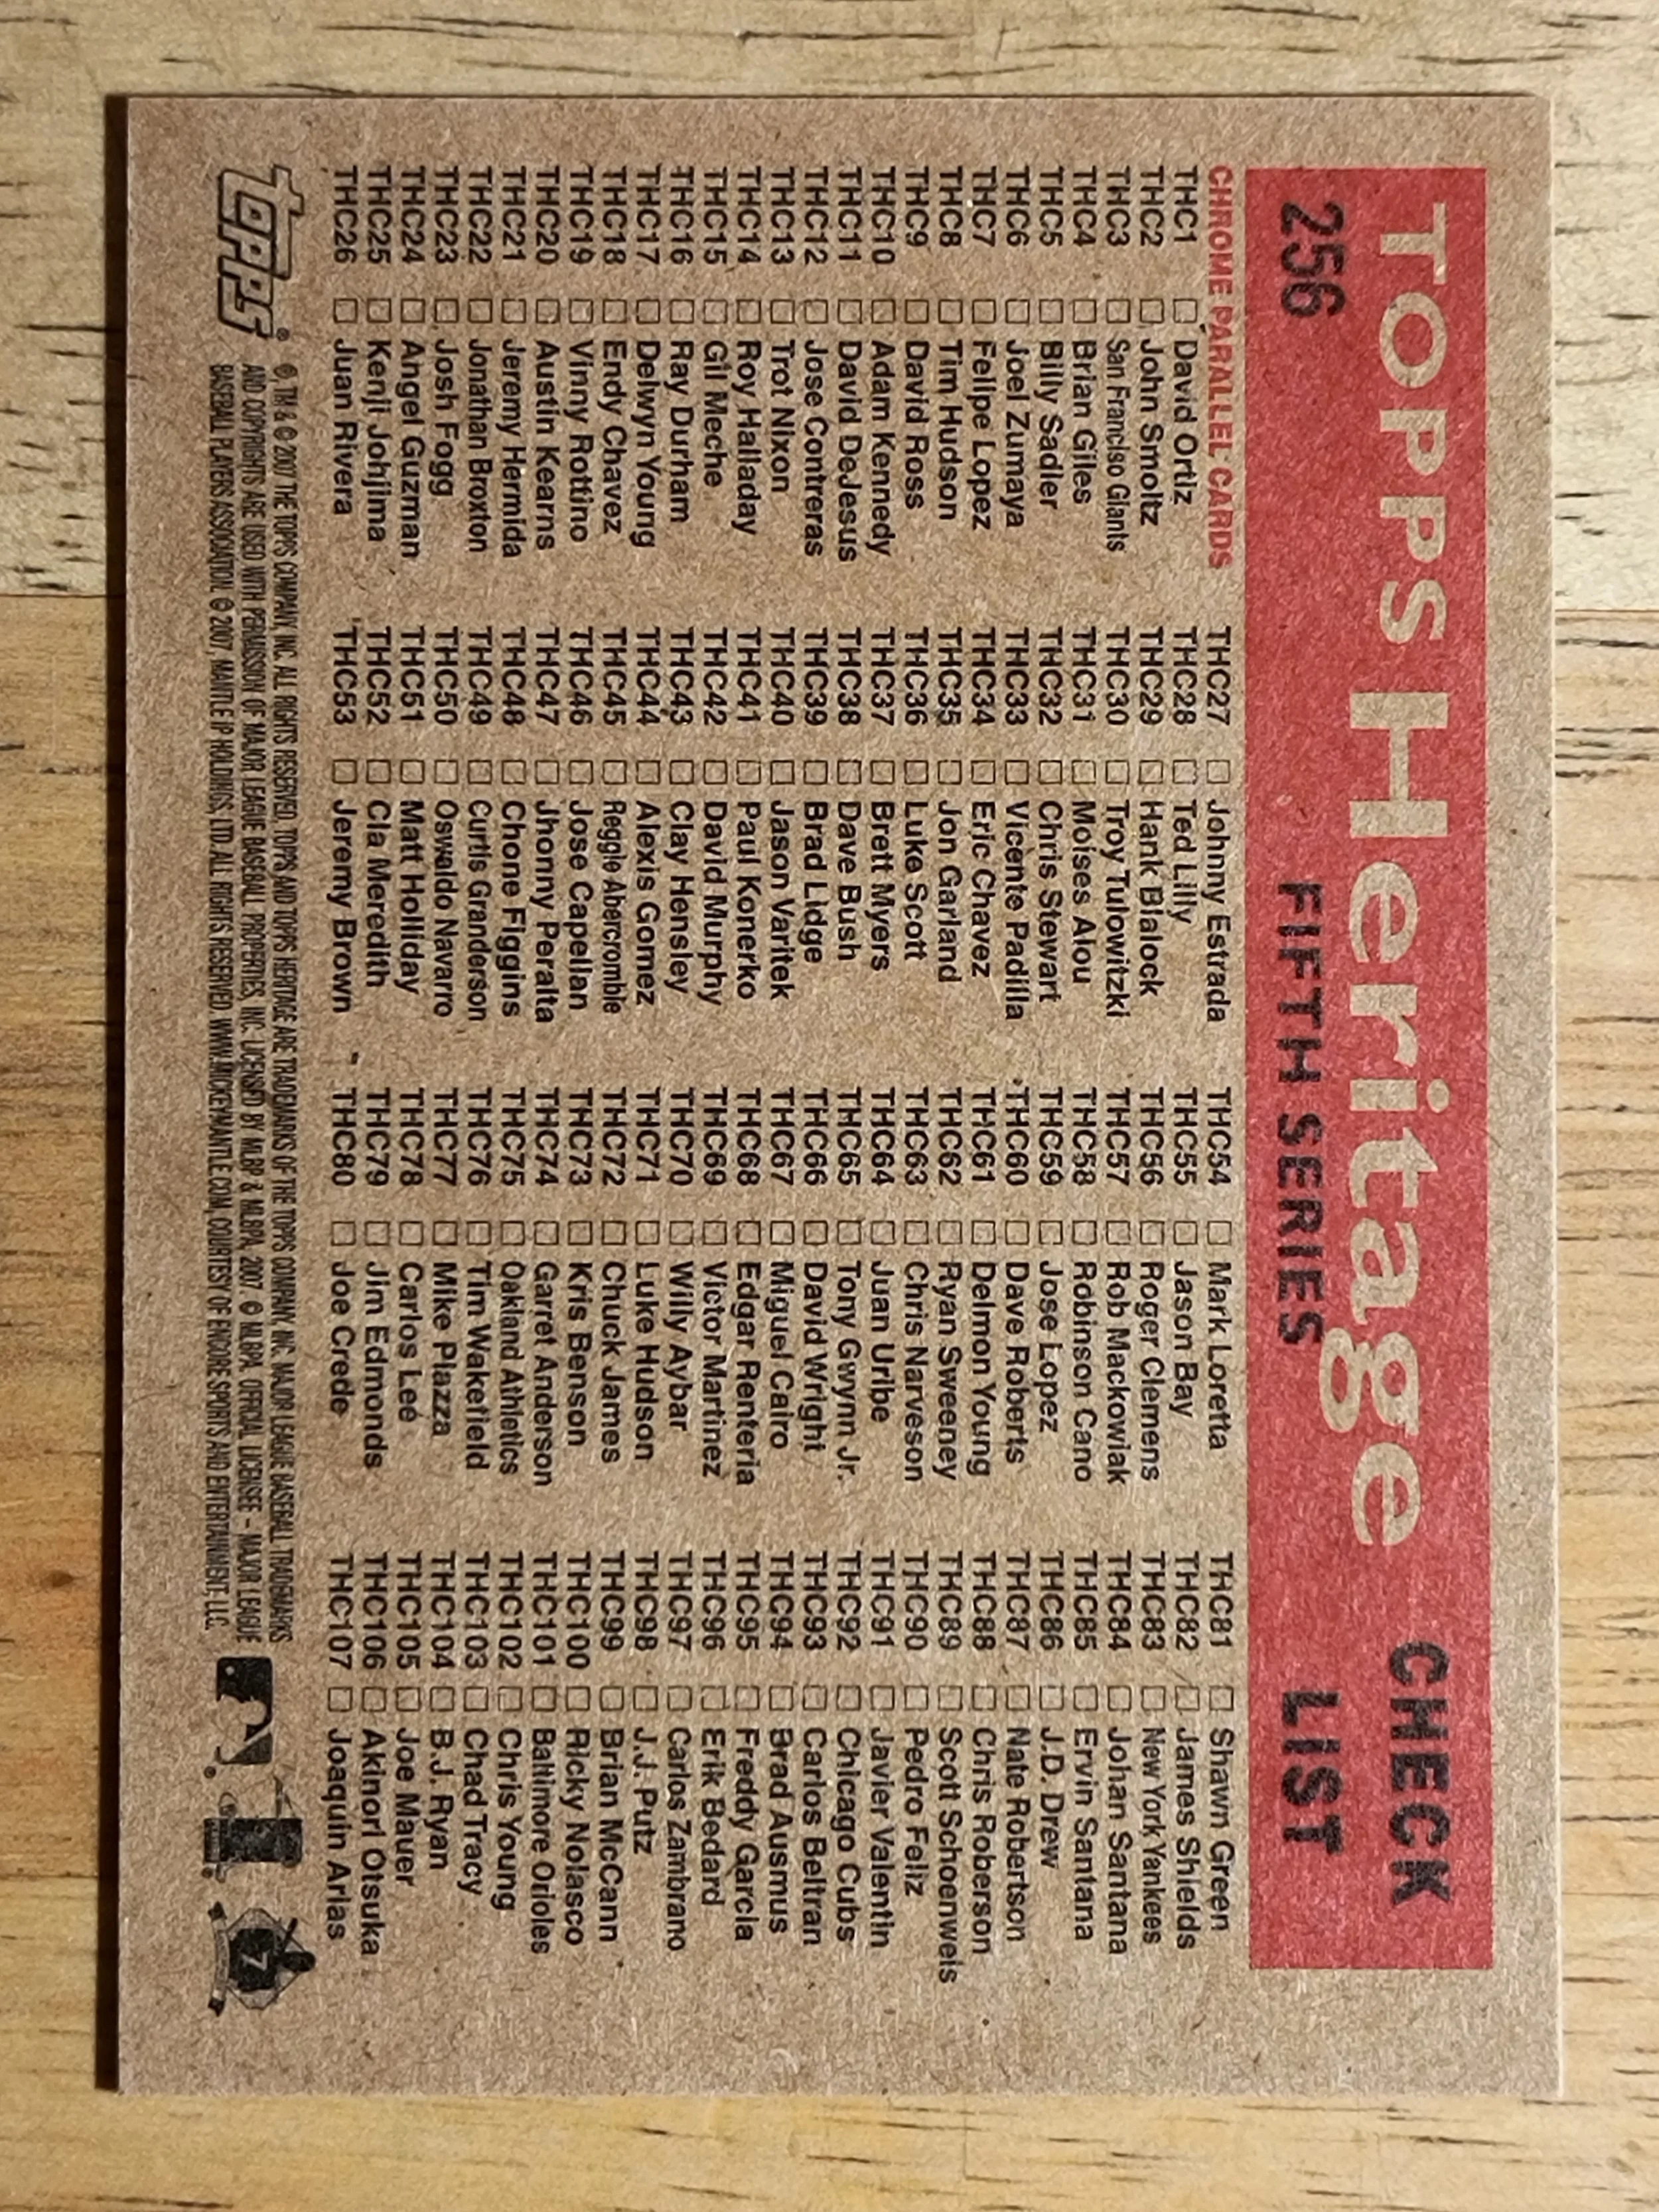 TOPPS Heritage CHECK LIST
256 FIFTH SERIES
CHROME PARALLEL CARDS
THC1 David Ortiz
THC2 John Smoltz
THC3 San Franciso Giants
THC4 Brian Giles
THC5 Billy Sadler
THC6 Joel Zumaya
THC7 Felipe Lopez
THC8 Tim Hudson
THC9 David Ross
THC10 Adam Kennedy
THC11 David DeJesus
THC12 Jose Contreras
THC13 Trot Nixon
THC14 Roy Halladay
THC15 Gil Meche
THC16 Ray Durham
THC17 Delwyn Young
THC18 Endy Chavez
THC19 Vinny Rottino
THC20 Austin Kearns
THC21 Jeremy Hermida
THC22 Jonathan Broxton
THC23 Josh Fogg
THC24 Angel Guzman
THC25 Kenji Johjima
THC26 Juan Rivera
THC27 Johnny Estrada
THC28 Ted Lilly
THC29 Hank Blalock
THC30 Troy Tulowitzki
THC31 Moises Alou
THC32 Chris Stewart
THC33 Vicente Padilla
THC34 Eric Chavez
THC35 Jon Garland
THC36 Luke Scott
THC37 Brett Myers
THC38 Dave Bush
THC39 Brad Lidge
THC40 Jason Varitek
THC41 Paul Konerko
THC42 David Murphy
THC43 Clay Hensley
THC44 Alexis Gomez
THC45 Reggie Abercrombie
THC46 Jose Capellan
THC47 Jhonny Peralta
THC48 Chone Figgins
THC49 Curtis Granderson
THC50 Oswaldo Navarro
THC51 Matt Holliday
THC52 Cla Meredith
THC53 Jeremy Brown
THC54 Mark Loretta
THC55 Jason Bay
THC56 Roger Clemens
THC57 Rob Mackowiak
THC58 Robinson Cano
THC59 Jose Lopez
THC60 Dave Roberts
THC61 Delmon Young
THC62 Ryan Sweeney
THC63 Chris Narveson
THC64 Juan Uribe
THC65 Tony Gwynn Jr.
THC66 David Wright
THC67 Miguel Cairo
THC68 Edgar Renteria
THC69 Victor Martinez
THC70 Willy Aybar
THC71 Luke Hudson
THC72 Chuck James
THC73 Kris Benson
THC74 Garret Anderson
THC75 Oakland Athletics
THC76 Tim Wakefield
THC77 Mike Piazza
THC78 Carlos Lee
THC79 Jim Edmonds
THC80 Joe Crede
THC81 Shawn Green
THC82 James Shields
THC83 New York Yankees
THC84 Johan Santana
THC85 Ervin Santana
THC86 J.D. Drew
THC87 Nate Robertson
THC88 Chris Roberson
THC89 Scott Schoenweis
THC90 Pedro Feliz
THC91 Javier Valentin
THC92 Chicago Cubs
THC93 Carlos Beltran
THC94 Brad Ausmus
THC95 Freddy Garcia
THC96 Erik Bedard
THC97 Carlos Zambrano
THC98 J.J. Putz
THC99 Brian McCann
THC100 Ricky Nolasco
THC101 Baltimore Orioles
THC102 Chris Young
THC103 Chad Tracy
THC104 B.J. Ryan
THC105 Joe Mauer
THC106 Akinori Otsuka
THC107 Joaquin Arias
Topps®
®, TM & © 2007 THE TOPPS COMPANY, INC. ALL RIGHTS RESERVED. TOPPS AND TOPPS HERITAGE ARE TRADEMARKS OF THE TOPPS COMPANY, INC. MAJOR LEAGUE BASEBALL TRADEMARKS
AND COPYRIGHTS ARE USED WITH PERMISSION OF MAJOR LEAGUE BASEBALL PROPERTIES, INC. LICENSED BY MLBP & MLBPA, 2007. © MLBPA. OFFICIAL LICENSEE – MAJOR LEAGUE
BASEBALL PLAYERS ASSOCIATION. © 2007, MANTLE IP HOLDINGS, LTD. ALL RIGHTS RESERVED. WWW.MICKEYMANTLE.COM, COURTESY OF ENCORE SPORTS AND ENTERTAINMENT, LLC.
7